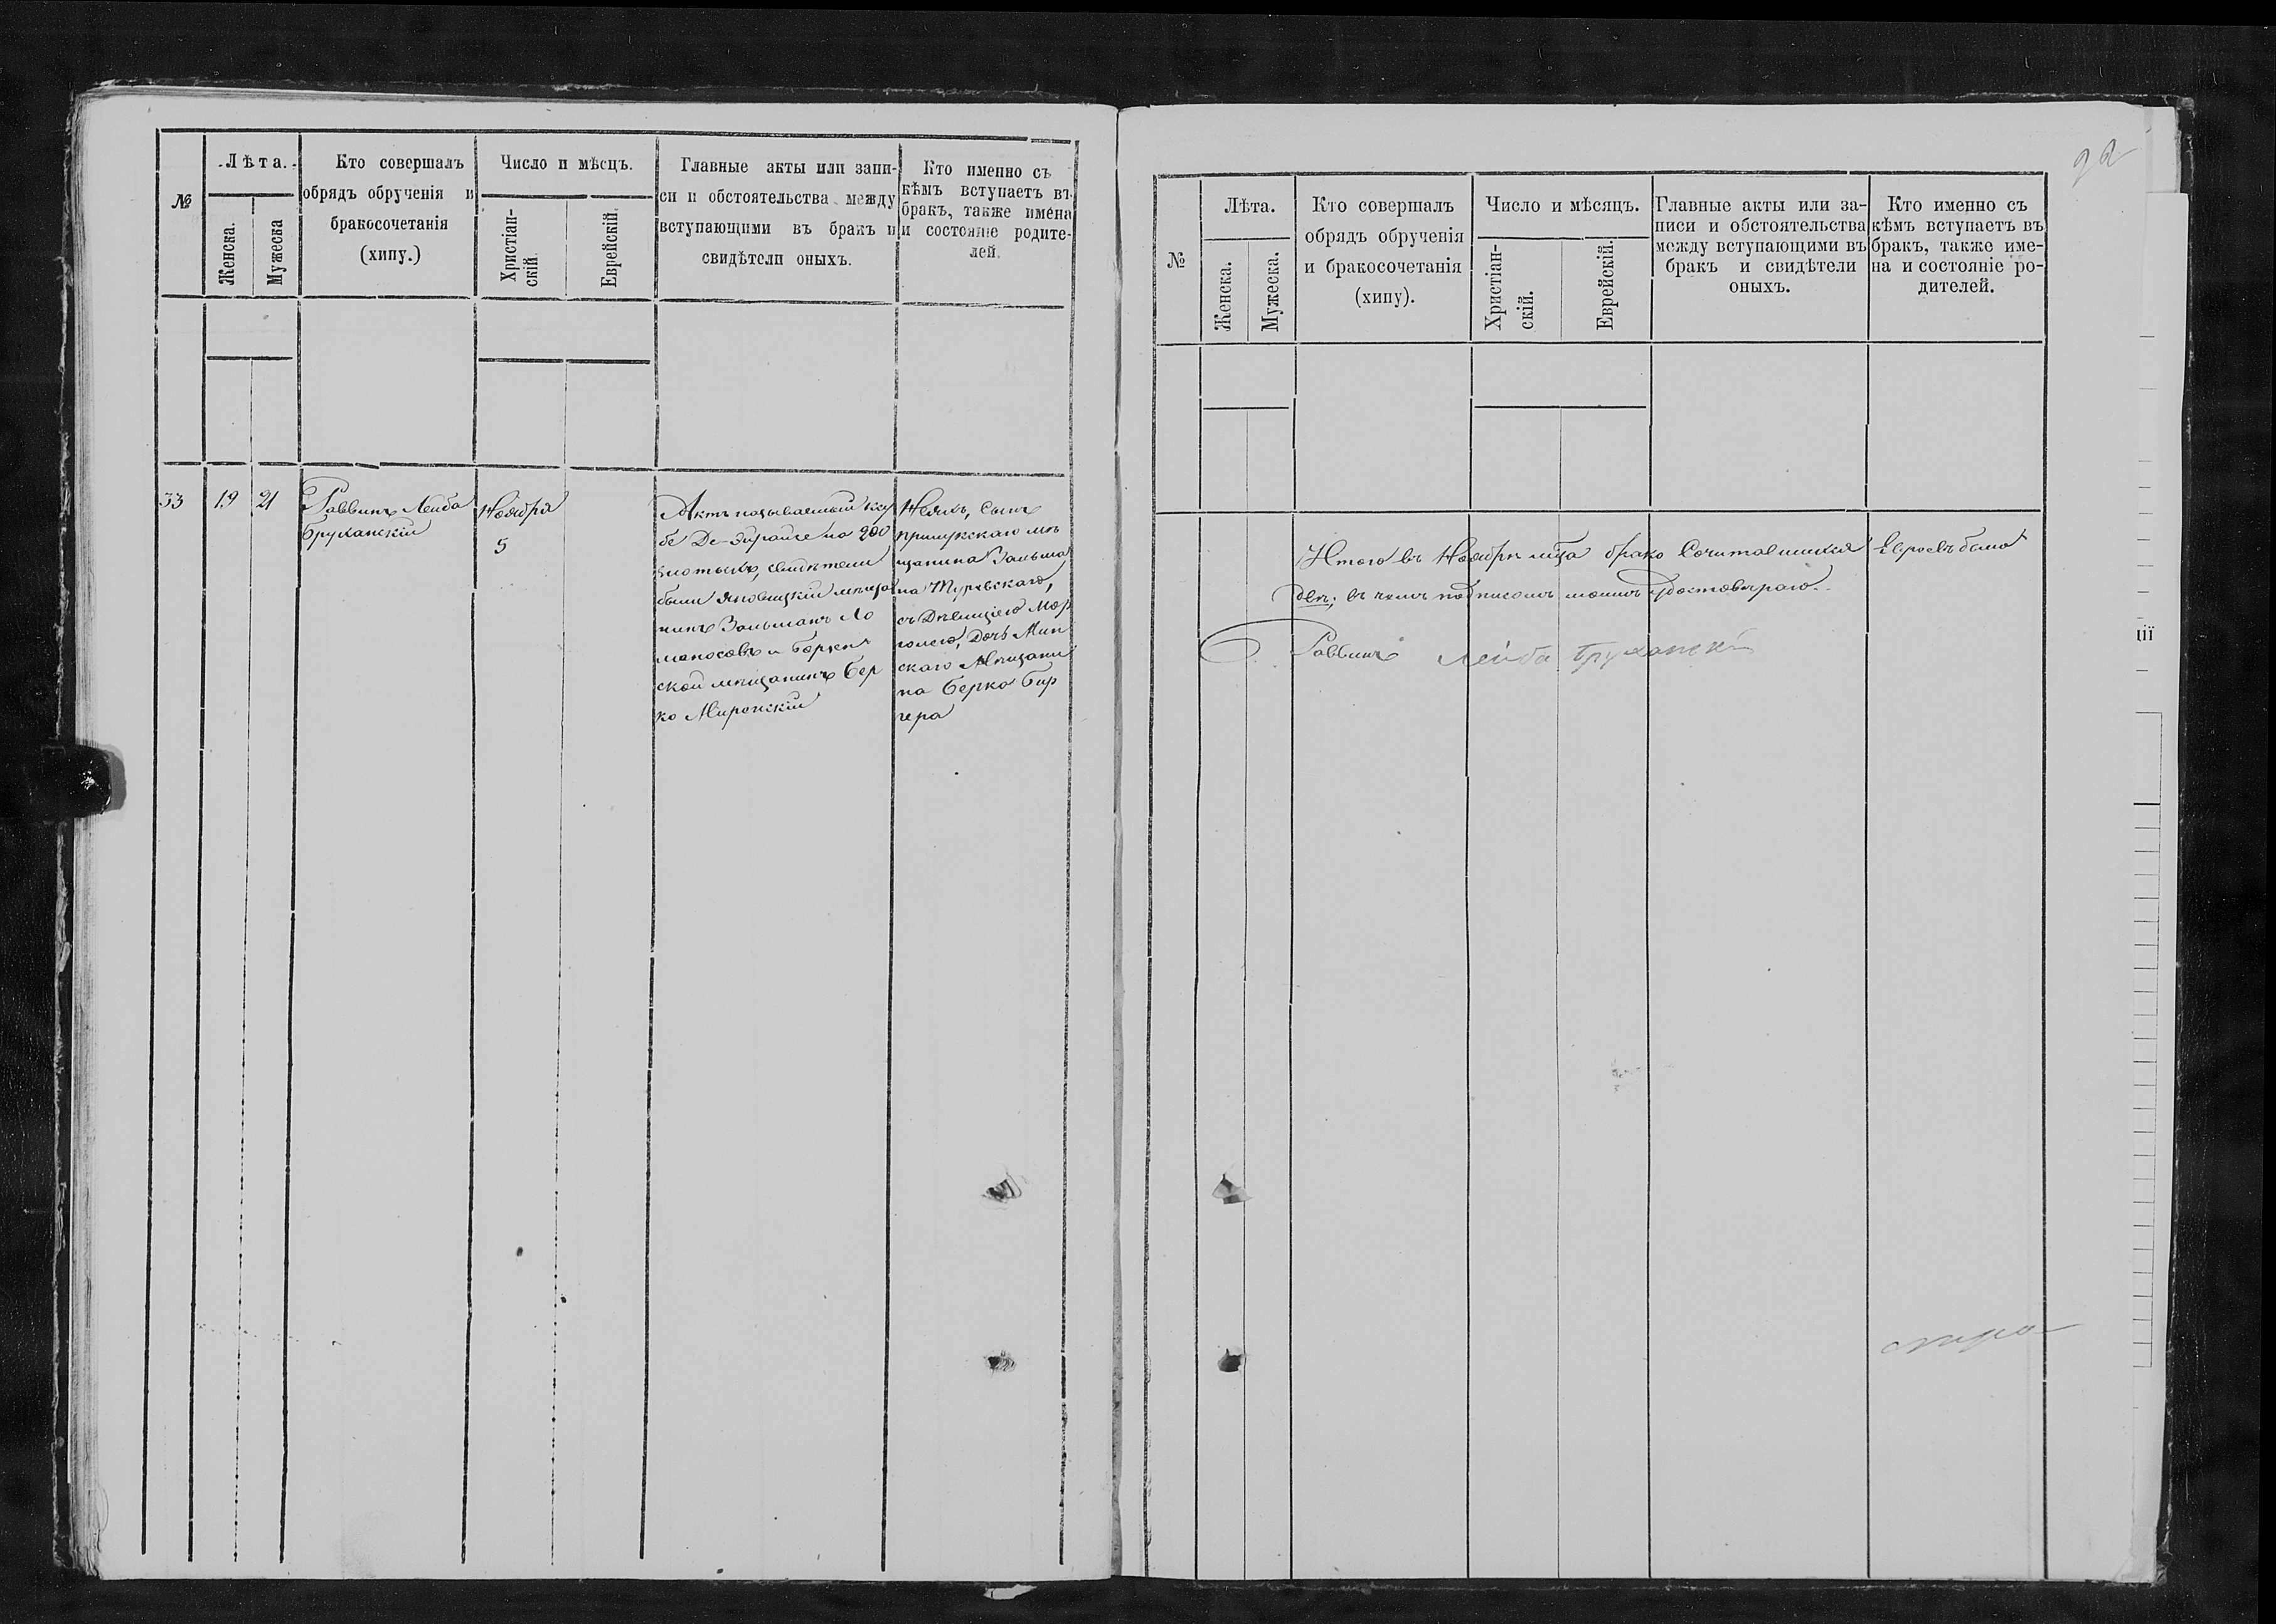 №
Лѣта.
Женска.
Мужеска
Кто совершалъ
обрядъ обрученія и
бракосочетанія
(хипу.)
Число и мѣсцъ.
Христіан-
скій.
Еврейскій.
Главные акты или запи-
си и обстоятельства между
вступающими въ бракъ и
свидѣтели оныхъ.
Кто именно съ
кѣмъ вступаетъ въ
бракъ, также имена
и состояніе родите-
лей.
33
19
21
Раввинъ Лейба
Бруханскій
Ноября
5
Актъ называемый кту
бе Де-Эйрайсе на 200
злотыхъ, свидѣтели
были Яновицкій мѣща
нинъ Зальманъ Ло
маносовъ и
ской мѣщанинъ Бер
ко Миренскій
сынъ
прилукскаго мѣ
щанина Зальма
на Туровскаго,
съ Дѣвицею Мар
голею, Дочь Мин
скаго Мѣщани
на Берко Бир
гера
№
Лѣта.
Женска.
Мужеска.
Кто совершалъ
обрядъ обрученія
и бракосочетанія
(хипу).
Число и мѣсяцъ.
Христіан-
скій.
Еврейскій.
Главные акты или за-
писи и обстоятельства
между вступающими въ
бракъ и свидѣтели
оныхъ.
Кто именно съ
кѣмъ вступаетъ въ
бракъ, также име-
на и состояніе ро-
дителей.
Итого въ Ноябрѣ мца брако Сочитавшихся Евреевъ было
двѣ; въ чемъ подписомъ моимъ удостоверяю.
Раввинъ Лейба Бруханскій
ції